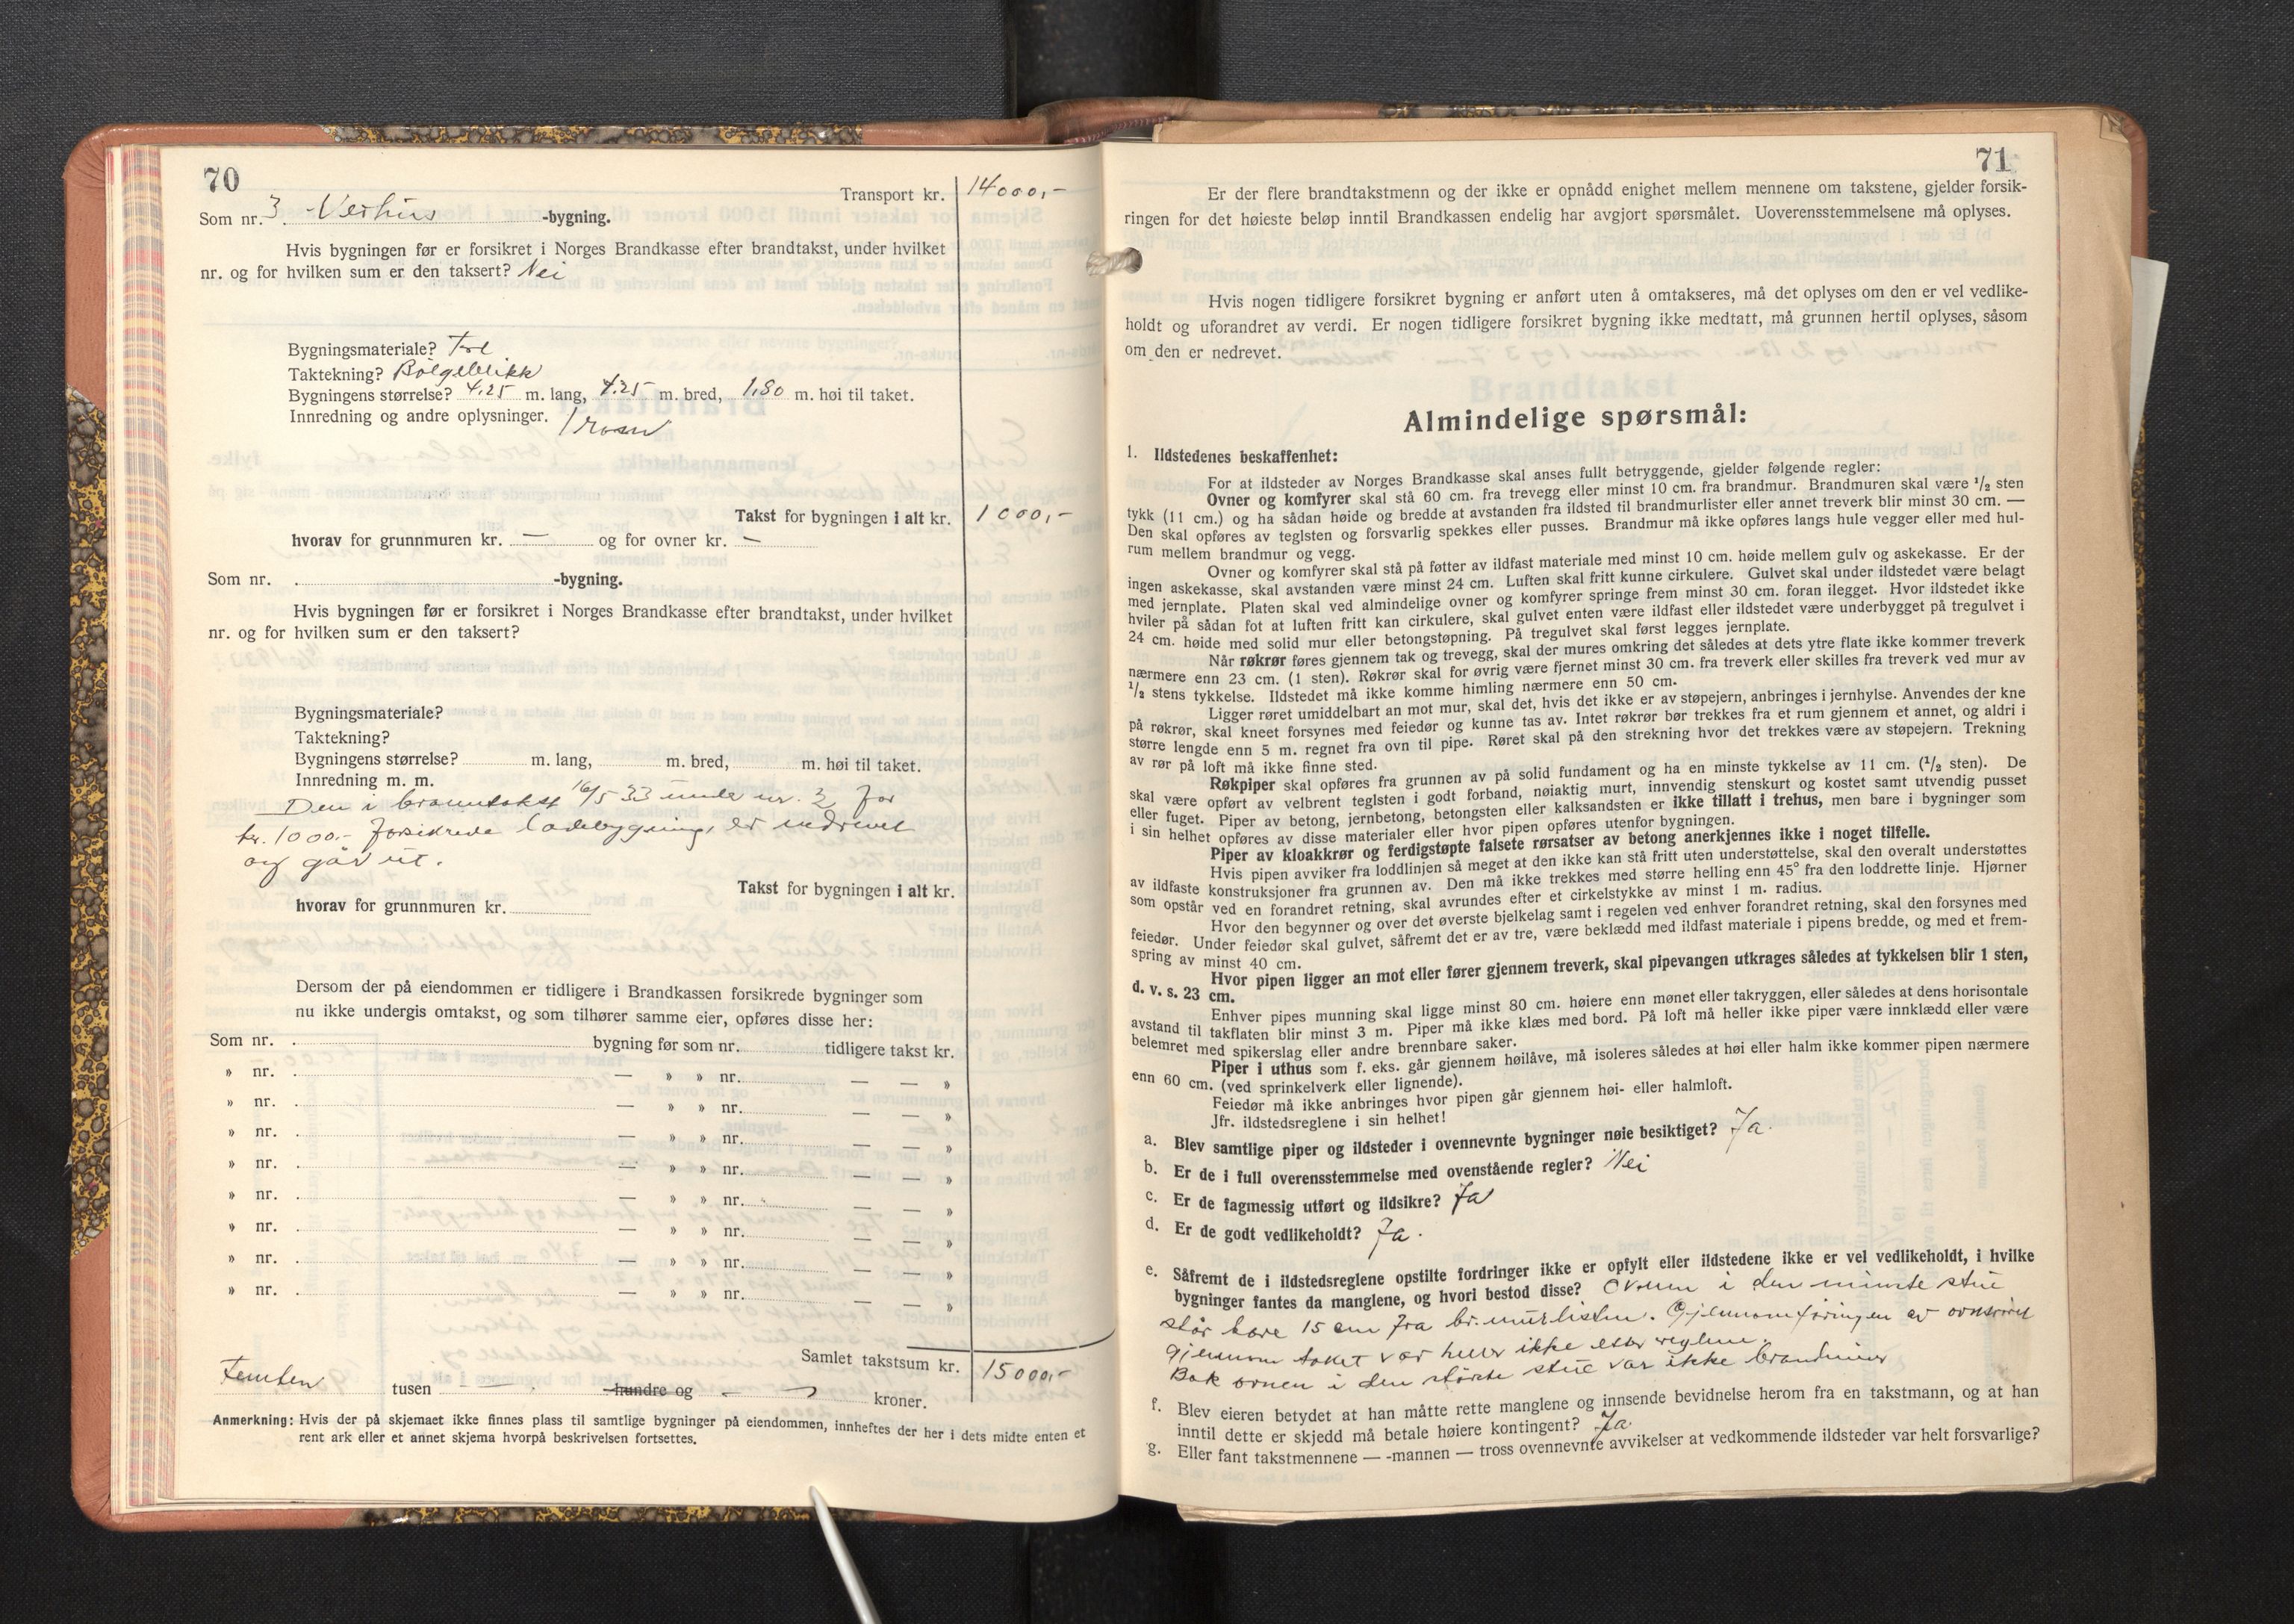 70
Transport kr. 14000,-
Som nr. 3 Vedhus -bygning.
Hvis bygningen før er forsikret i Norges Brandkasse efter brandtakst, under hvilket
nr. og for hvilken sum er den taksert? Nei
Bygningsmateriale? Tre
Taktekning? Bølgeblikk
Bygningens størrelse? 4.25 m. lang, 4.25 m. bred, 1,80 m. høi til taket.
Innredning og andre oplysninger. 1 rom
Takst for bygningen i alt kr. 1000,-
hvorav for grunnmuren kr. — og for ovner kr. —
Som nr. -bygning.
Hvis bygningen før er forsikret i Norges Brandkasse efter brandtakst, under hvilket
nr. og for hvilken sum er den taksert?
Bygningsmateriale?
Taktekning?
Bygningens størrelse? m. lang, m. bred, m. høi til taket.
Innredning m. m.
Den i branntakst 16/5 33 under nr. 2 for
kr. 1000.- forsikrede ladebygning, er nedrevet
og går ut.
Takst for bygningen i alt kr.
hvorav for grunnmuren kr.
Dersom der på eiendommen er tidligere i Brandkassen forsikrede bygninger som
nu ikke undergis omtakst, og som tilhører samme eier, opføres disse her:
Som nr. bygning før som nr. tidligere takst kr.
» nr. — » » nr. — — »
» nr. — » » nr. — — »
» nr. — » » nr. — — »
» nr. — » » nr. — — »
» nr. — » » nr. — — »
» nr. — » » nr. — — »
» nr. — » » nr. — — »
» nr. — » » nr. — — »
Samlet takstsum kr. 15000,-
Femten tusen — hundre og — kroner.
Anmerkning: Hvis der på skjemaet ikke finnes plass til samtlige bygninger på eiendommen, innheftes der her i dets midte enten et
rent ark eller et annet skjema hvorpå beskrivelsen fortsettes.
71
Er der flere brandtakstmenn og der ikke er opnådd enighet mellem mennene om takstene, gjelder forsik-
ringen for det høieste beløp inntil Brandkassen endelig har avgjort spørsmålet. Uoverensstemmelsene må oplyses.
Hvis nogen tidligere forsikret bygning er anført uten å omtakseres, må det oplyses om den er vel vedlike-
holdt og uforandret av verdi. Er nogen tidligere forsikret bygning ikke medtatt, må grunnen hertil oplyses, såsom
om den er nedrevet.
Almindelige spørsmål:
1. Ildstedenes beskaffenhet:
For at ildsteder av Norges Brandkasse skal anses fullt betryggende, gjelder følgende regler:
Ovner og komfyrer skal stå 60 cm. fra trevegg eller minst 10 cm. fra brandmur. Brandmuren skal være 1/2 sten
tykk (11 cm.) og ha sådan høide og bredde at avstanden fra ildsted til brandmurlister eller annet treverk blir minst 30 cm. —
Den skal opføres av teglsten og forsvarlig spekkes eller pusses. Brandmur må ikke opføres langs hule vegger eller med hul-
rum mellem brandmur og vegg.
Ovner og komfyrer skal stå på føtter av ildfast materiale med minst 10 cm. høide mellem gulv og askekasse. Er der
ingen askekasse, skal avstanden være minst 24 cm. Luften skal fritt kunne cirkulere. Gulvet skal under ildstedet være belagt
med jernplate. Platen skal ved almindelige ovner og komfyrer springe frem minst 30 cm. foran ilegget. Hvor ildstedet ikke
hviler på sådan fot at luften fritt kan cirkulere, skal gulvet enten være ildfast eller ildstedet være underbygget på tregulvet i
24 cm. høide med solid mur eller betongstøpning. På tregulvet skal først legges jernplate.
Når røkrør føres gjennem tak og trevegg, skal der mures omkring det således at dets ytre flate ikke kommer treverk
nærmere enn 23 cm. (1 sten). Røkrør skal for øvrig være fjernet minst 30 cm. fra treverk eller skilles fra treverk ved mur av
1/2 stens tykkelse. Ildstedet må ikke komme himling nærmere enn 50 cm.
Ligger røret umiddelbart an mot mur, skal det, hvis det ikke er av støpejern, anbringes i jernhylse. Anvendes der kne
på røkrør, skal kneet forsynes med feiedør og kunne tas av. Intet røkrør bør trekkes fra et rum gjennem et annet, og aldri i
større lengde enn 5 m. regnet fra ovn til pipe. Røret skal på den strekning hvor det trekkes være av støpejern. Trekning
av rør på loft må ikke finne sted.
Røkpiper skal opføres fra grunnen av på solid fundament og ha en minste tykkelse av 11 cm. (1/2 sten). De
skal være opført av velbrent teglsten i godt forband, nøiaktig murt, innvendig stenskurt og kostet samt utvendig pusset
eller fuget. Piper av betong, jernbetong, betongsten eller kalksandsten er ikke tillatt i trehus, men bare i bygninger som
i sin helhet opføres av disse materialer eller hvor pipen opføres utenfor bygningen.
Piper av kloakkrør og ferdigstøpte falsete rørsatser av betong anerkjennes ikke i noget tilfelle.
Hvis pipen avviker fra loddlinjen så meget at den ikke kan stå fritt uten understøttelse, skal den overalt understøttes
av ildfaste konstruksjoner fra grunnen av. Den må ikke trekkes med større helling enn 45° fra den loddrette linje. Hjørner
som opstår ved en forandret retning, skal avrundes efter et cirkelstykke av minst 1 m. radius.
Hvor den begynner og over det øverste bjelkelag samt i regelen ved enhver forandret retning, skal den forsynes med
feiedør. Under feiedør skal gulvet, såfremt det er av tre, være beklædd med ildfast materiale i pipens bredde, og med et frem-
spring av minst 40 cm.
Hvor pipen ligger an mot eller fører gjennem treverk, skal pipevangen utkrages således at tykkelsen blir 1 sten,
d. v. s. 23 cm.
Enhver pipes munning skal ligge minst 80 cm. høiere enn mønet eller takryggen, eller således at dens horisontale
avstand til takflaten blir minst 3 m. Piper må ikke klæs med bord. På loft må heller ikke piper være innklædd eller være
belemret med spikerslag eller andre brennbare saker.
Piper i uthus som f. eks. går gjennem høilåve, må isoleres således at høi eller halm ikke kommer pipen nærmere
enn 60 cm. (ved sprinkelverk eller lignende).
Feiedør må ikke anbringes hvor pipen går gjennem høi- eller halmloft.
Jfr. ildstedsreglene i sin helhet!
a. Blev samtlige piper og ildsteder i ovennevnte bygninger nøie besiktiget? Ja.
b. Er de i full overensstemmelse med ovenstående regler? Nei
c. Er de fagmessig utført og ildsikre? Ja
d. Er de godt vedlikeholdt? Ja.
e. Såfremt de i ildstedsreglene opstilte fordringer ikke er opfylt eller ildstedene ikke er vel vedlikeholdt, i hvilke
bygninger fantes da manglene, og hvori bestod disse? Ovnen i den minste stue
står bare 15 cm fra br.murlisten. Gjennomføringen av ovnsrøret
gjennom taket var heller ikke etter reglene.
Bak ovnen i den største stue var ikke brandmur
f. Blev eieren betydet at han måtte rette manglene og innsende bevidnelse herom fra en takstmann, og at han
inntil dette er skjedd må betale høiere kontingent? Ja.
g. Eller fant takstmennene — -mannen — tross ovennevnte avvikelser at vedkommende ildsteder var helt forsvarlige?